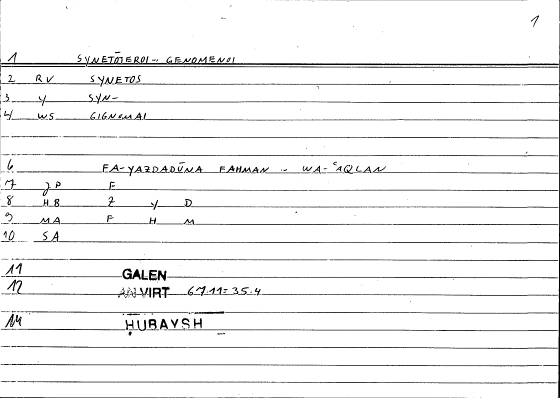 1
1 SYNETŌTEROI – GENOMENOI
2 RV SYNETOS
3 Y SYN-
4 WS GIGNOMAI
6 FA-YAZDADŪNA FAHMAN – WA-ʿAQLAN
7 JP F
8 HB Z Y D
9 MA F H M
10 SA
11 GALEN
12 AN VIRT 67.11=35.4
14 ḤUBAYSH